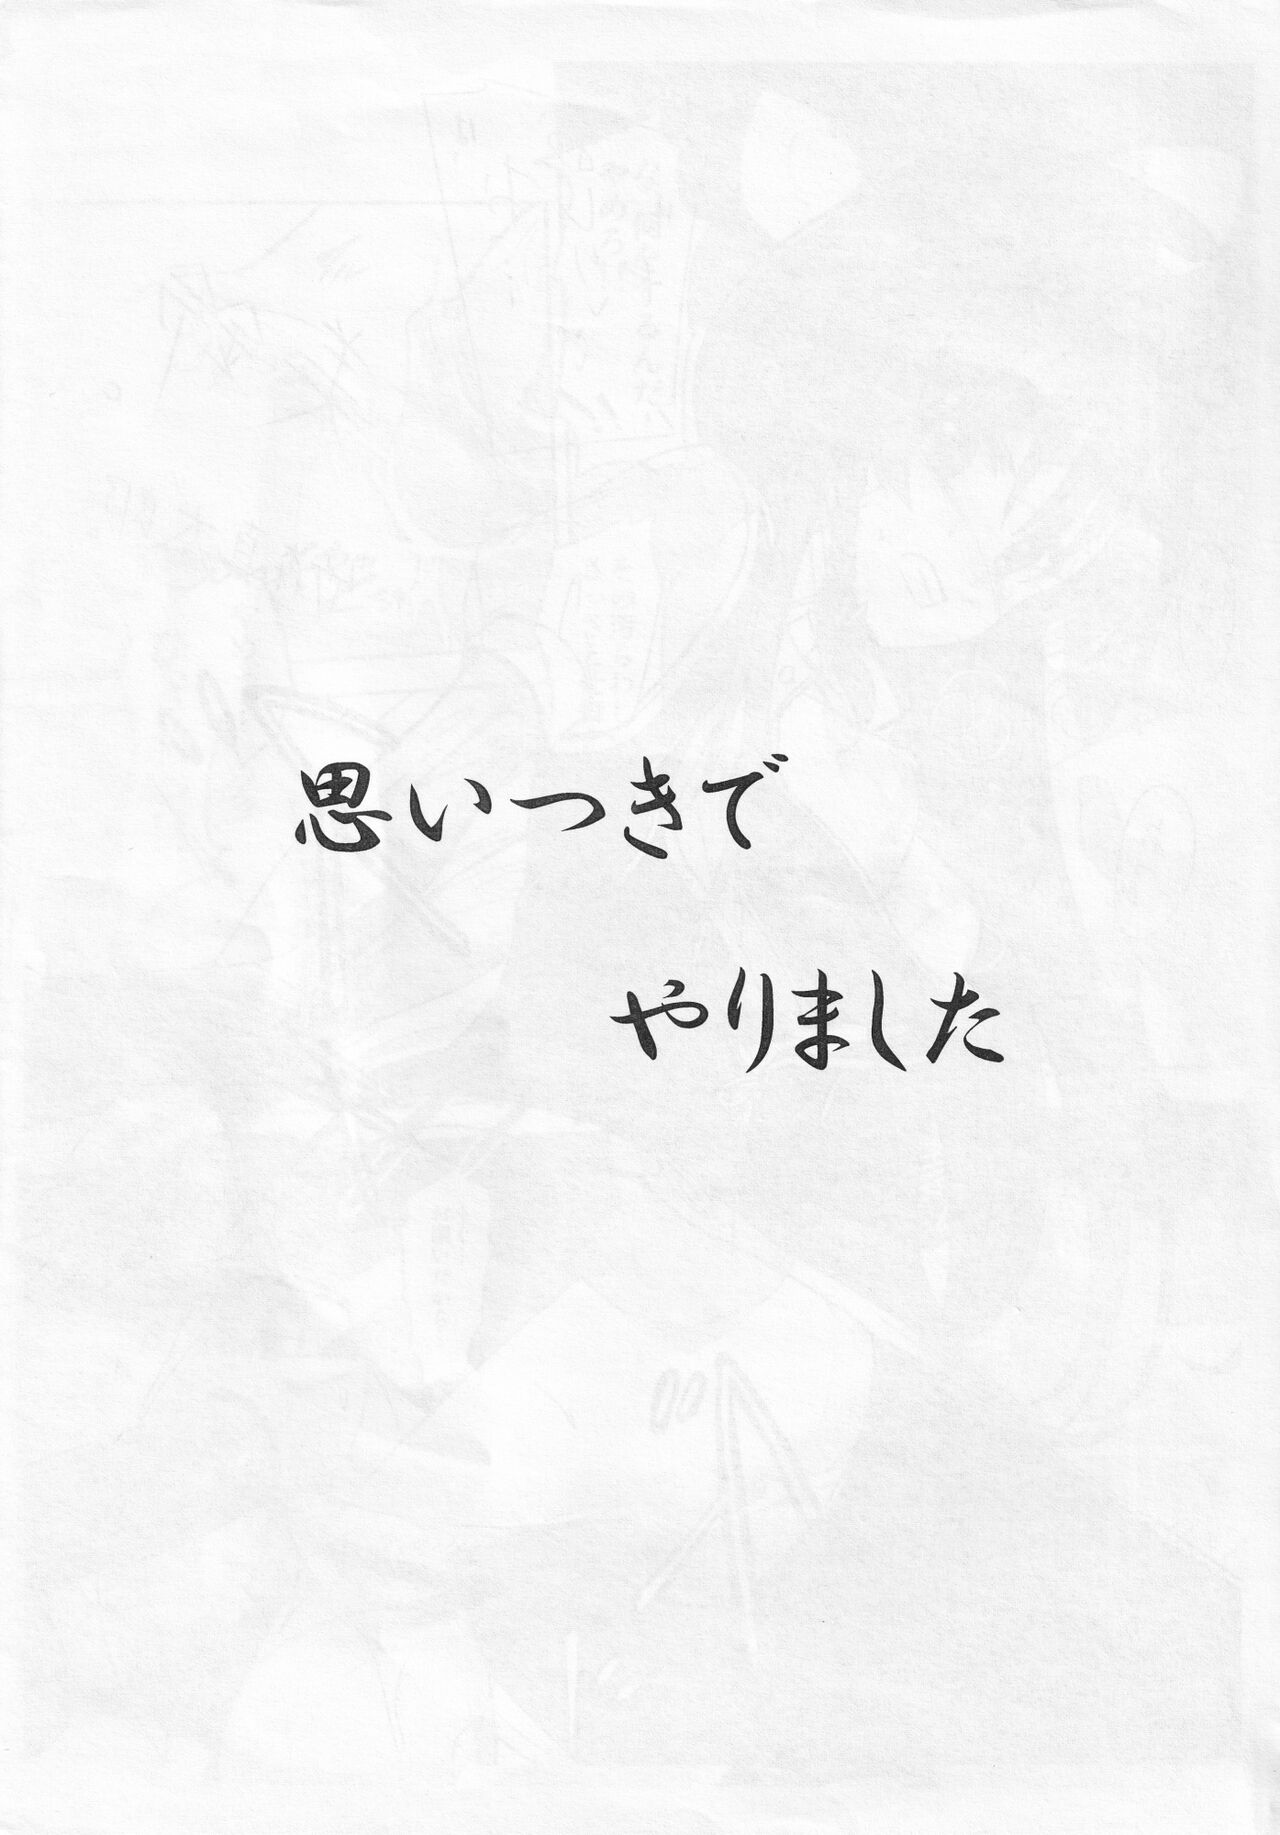 思いつきで
やりました